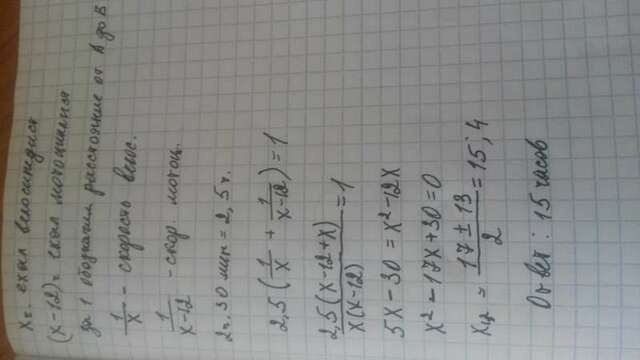 Xч. ехал велосипедист
(x-12)ч ехал мотоциклист
за 1 обозначим расстояние от А до В
1/x - скорость велос.
1/x-12 - скор. мотоц.
2ч. 30 мин = 2,5ч.
2,5(1/x + 1/x-12) = 1
2,5(x-12+x)/x(x-12) = 1
5x-30 = x²-12x
x²-17x+30=0
x₁,₂ = 17±13/2 = 15; 4
Ответ: 15 часов